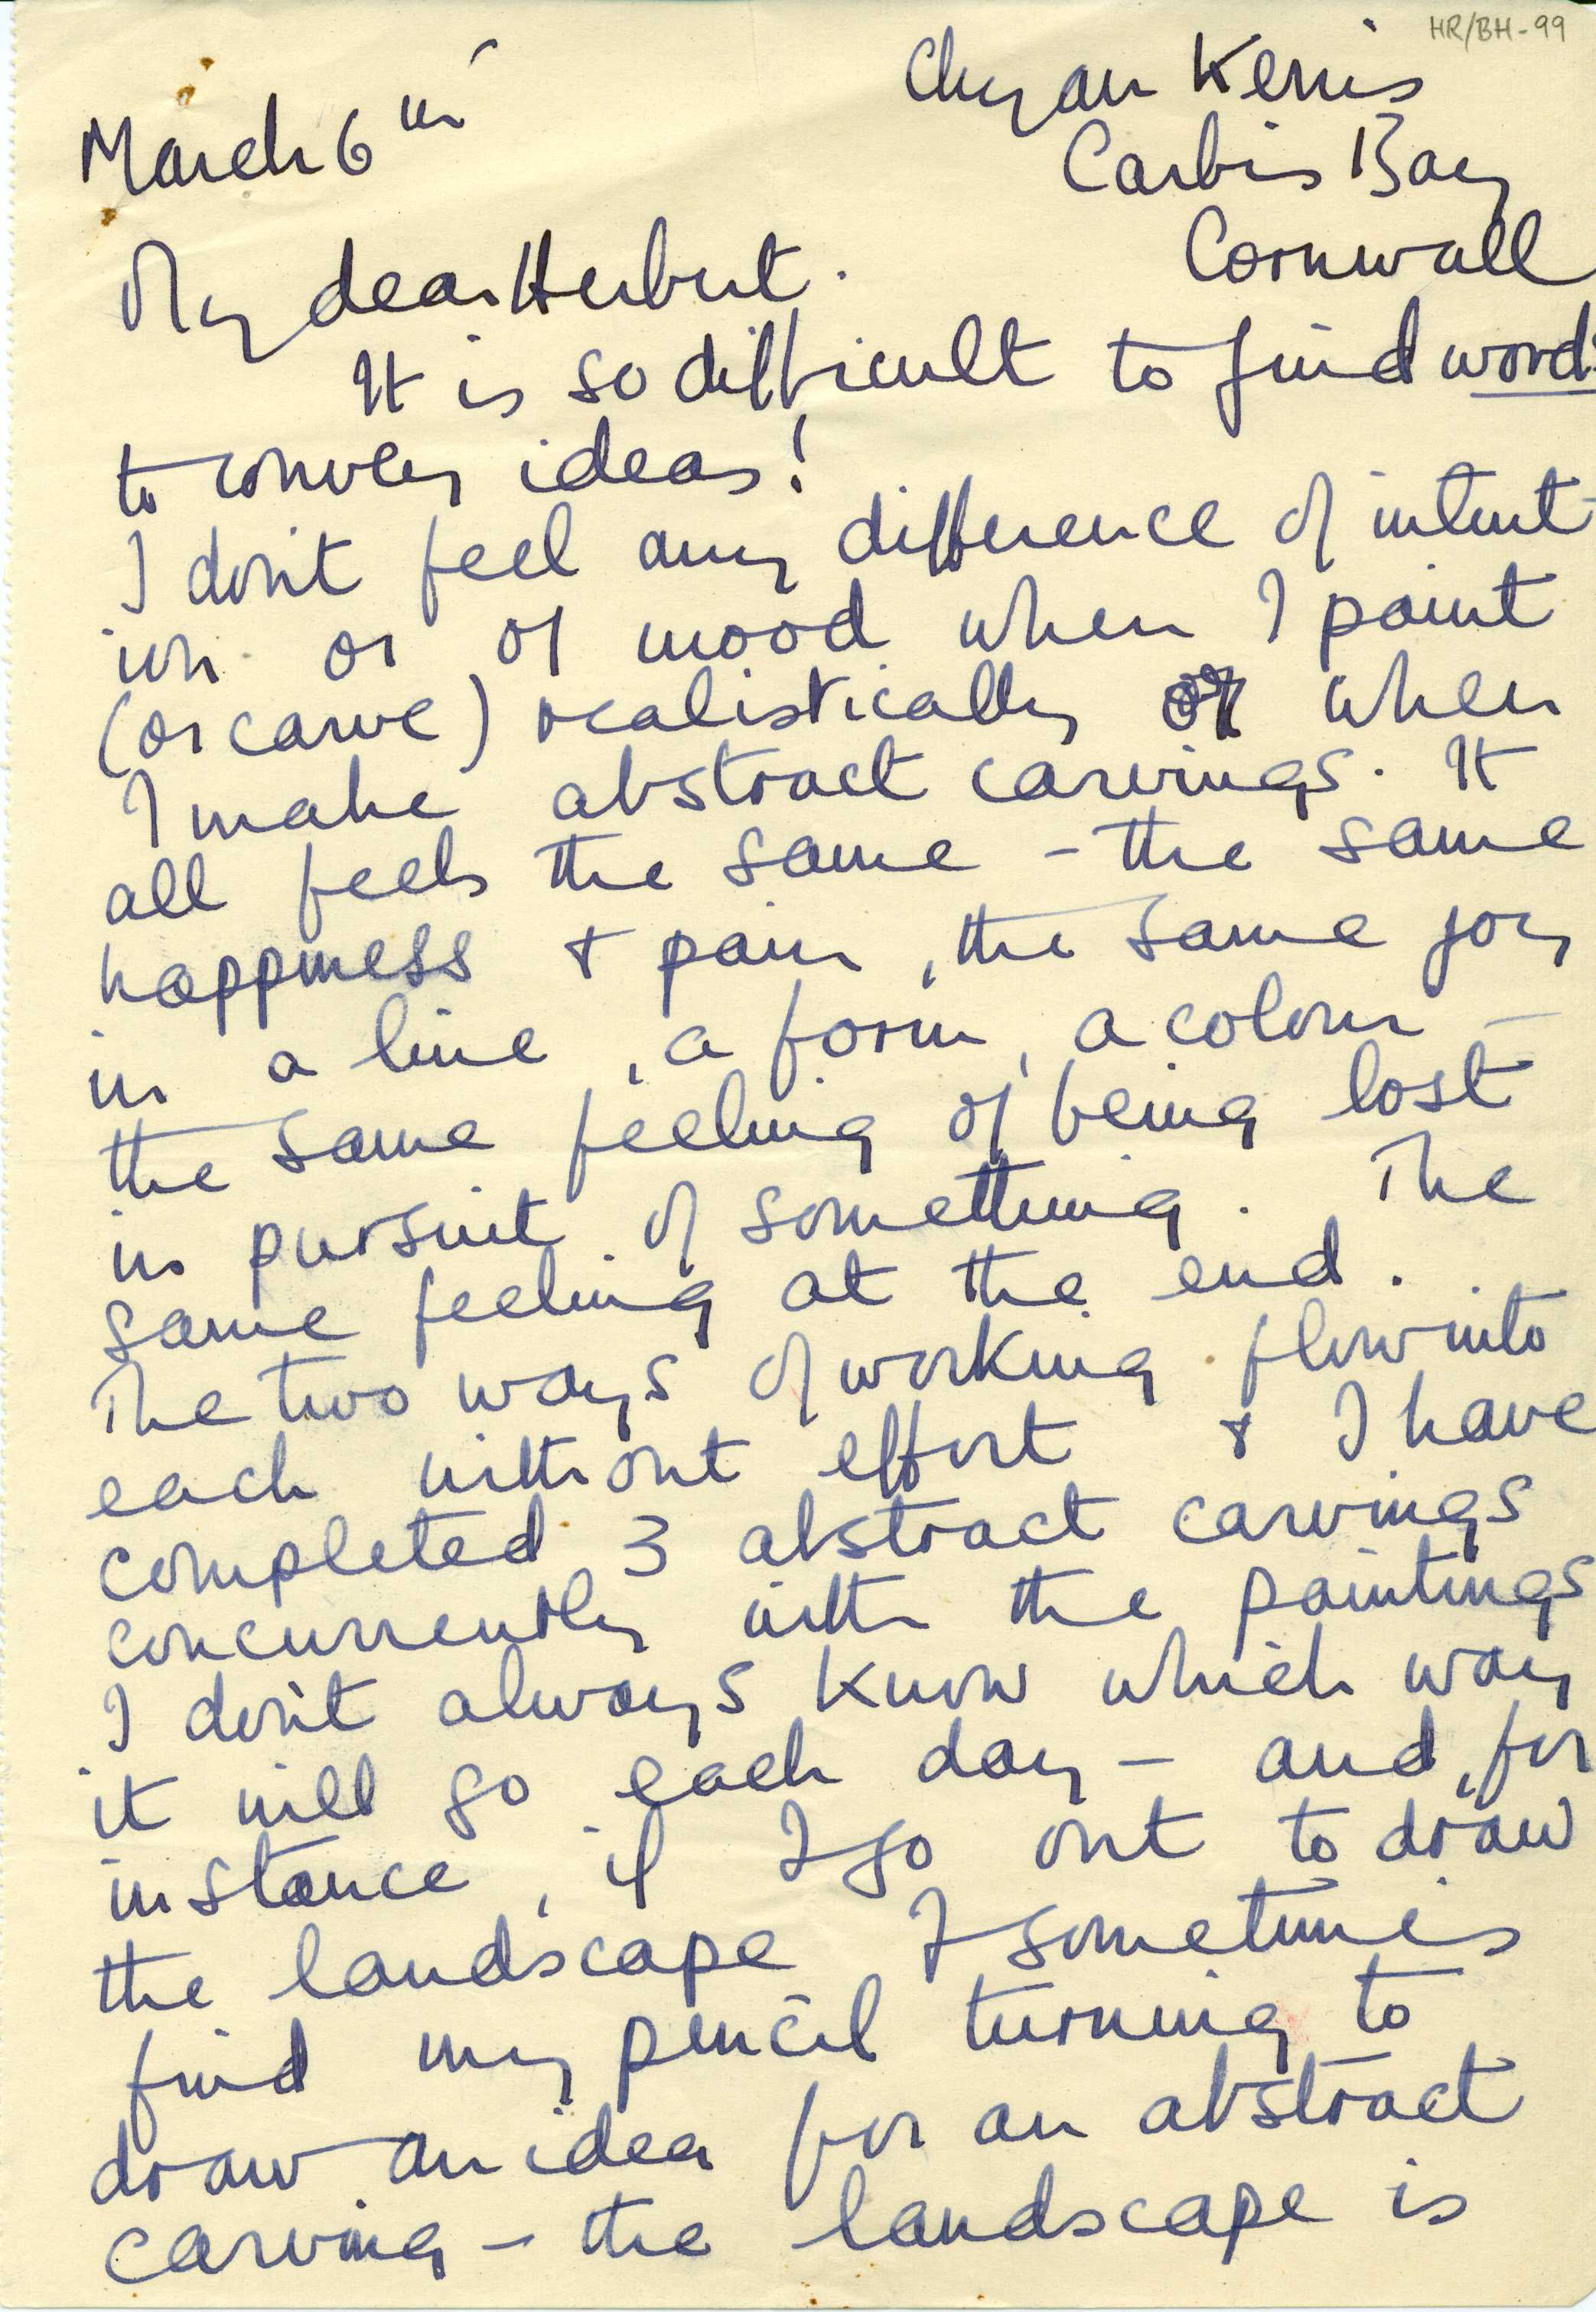 HR/BH-99
Chy an Kerris
March 6th
Carbis Bay
Cornwall
My dear Herbert.
It is so difficult to find words
to convey ideas!
I don't feel any difference of intent
ion or of mood when I paint
(or carve) realistically or when
I make abstract carvings. It
all feels the same – the same
happiness & pain, the same joy
in a line, a form, a colour –
the same feeling of being lost
in pursuit of something. The
same feeling at the end.
The two ways of working flow into
each without effort & I have
completed 3 abstract carvings
concurrently with the paintings
I don't always know which way
it will go each day – and, for
instance, if I go out to draw
the landscape I sometimes
find my pencil turning to
draw an idea for an abstract
carving – the landscape is